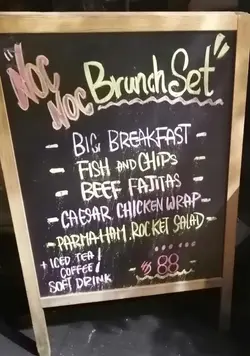 "NOC NOC Brunch Set"
- BIG BREAKFAST -
- FISH AND CHIPS -
- BEEF FAJITAS -
- CAESAR CHICKEN WRAP -
- PARMA HAM, ROCKET SALAD -
+ ICED TEA /
COFFEE /
SOFT DRINK
- $ 88 -